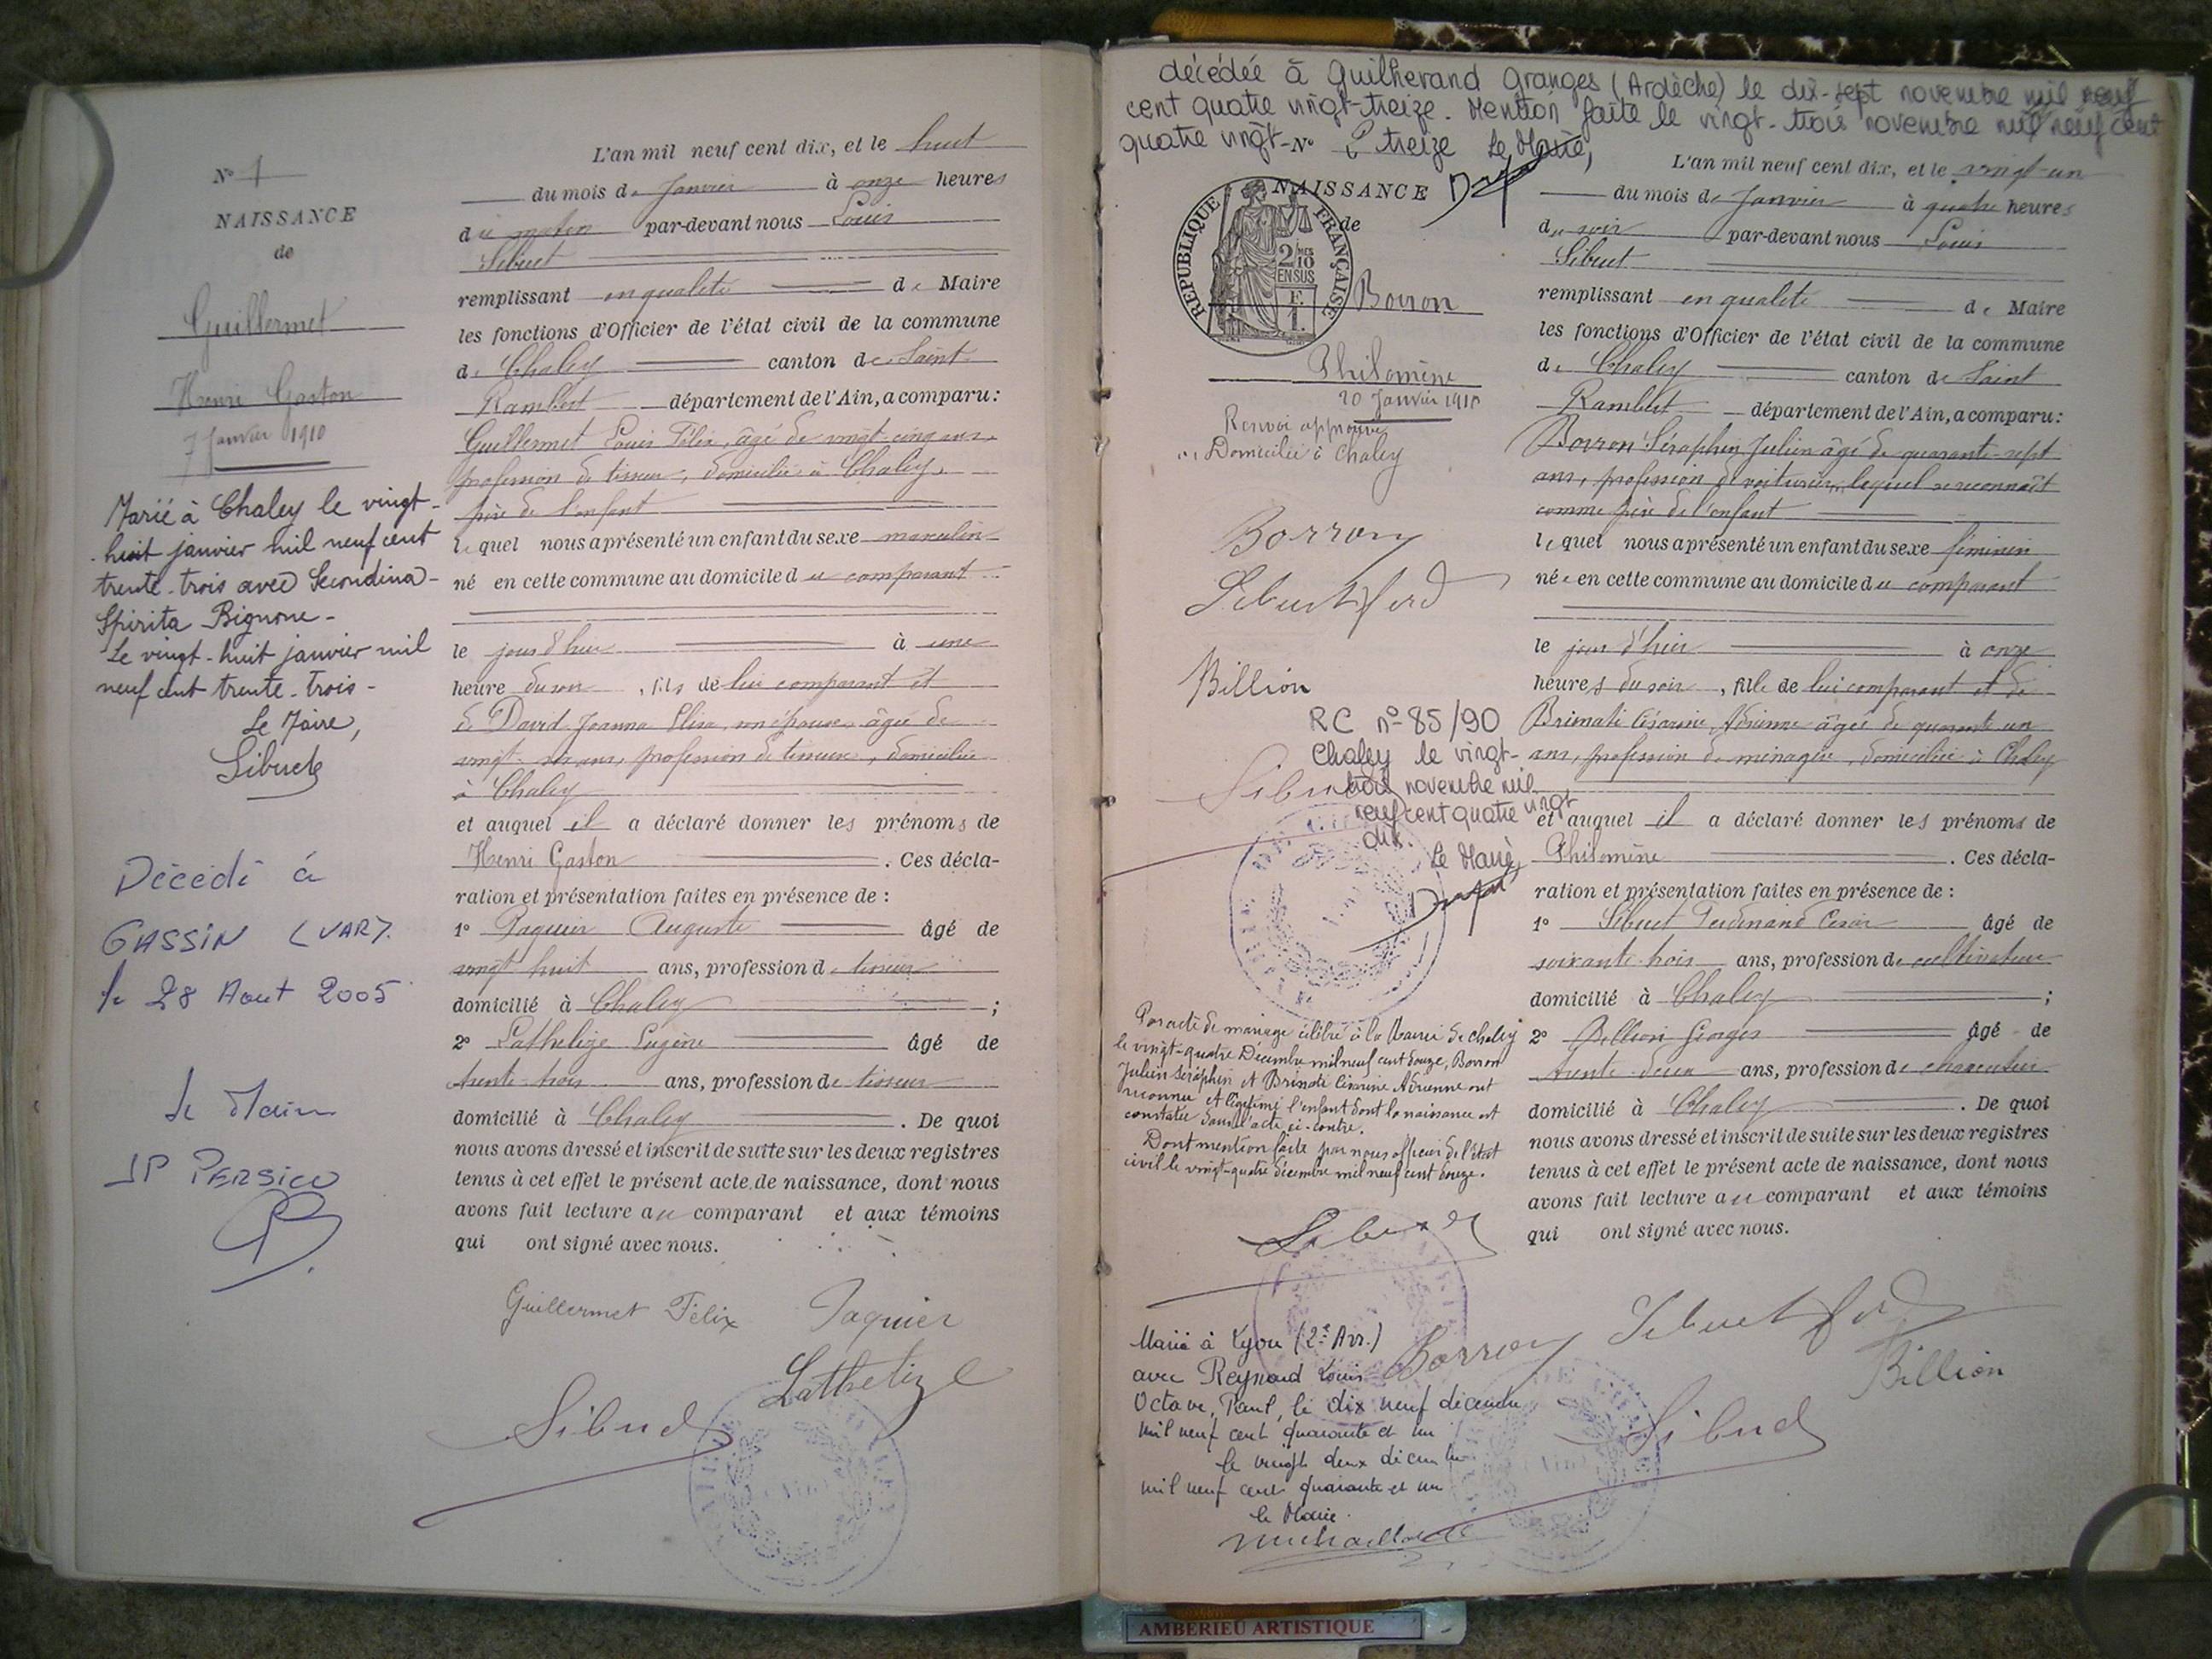 N° 1
NAISSANCE
de
Guillermet
Henri Gaston
7 Janvier 1910
Marié à Chaley le vingt-
huit janvier mil neuf cent
trente-trois avec Secondina-
Spirita Bignone-
Le vingt-huit janvier mil
neuf cent trente-trois-
Le Maire,
Sibuet
Décédé à
GASSIN (VAR).
le 28 Aout 2005
Le Maire
JP PERSICO
L'an mil neuf cent dix, et le huit
du mois de Janvier à onze heures
du matin par-devant nous Louis
Sibuet
remplissant en qualité de Maire
les fonctions d'Officier de l'état civil de la commune
de Chaley canton de Saint
Rambert département de l'Ain, a comparu:
Guillermet Louis Félix, âgé de vingt-cinq ans,
profession de tisseur, domicilié à Chaley,
père de l'enfant
lequel nous a présenté un enfant du sexe masculin
né en cette commune au domicile du comparant
le jour d'hier à une
heure du soir, fils de lui comparant et
de David Joanna Elisa, son épouse, âgée de
vingt ans, profession de tisseuse, domiciliée
à Chaley
et auquel il a déclaré donner les prénoms de
Henri Gaston. Ces décla-
ration et présentation faites en présence de :
1° Paquier Auguste âgé de
vingt huit ans, profession de tisseur
domicilié à Chaley ;
2° Lathelize Eugène âgé de
trente-trois ans, profession de tisseur
domicilié à Chaley. De quoi
nous avons dressé et inscrit de suite sur les deux registres
tenus à cet effet le présent acte de naissance, dont nous
avons fait lecture au comparant et aux témoins
qui ont signé avec nous.
Guillermet Félix Paquier
Lathelize
Sibuet
décédée à Guilherand Granges (Ardèche) le dix-sept novembre mil neuf
cent quatre vingt-treize. Mention faite le vingt-trois novembre mil neuf cent
quatre vingt-treize Le Maire,
N° 2
NAISSANCE
de
RÉPUBLIQUE FRANÇAISE
2/10
EN SUS
Borron
Philomène
20 Janvier 1910
Renvoi approuvé
Domicilié à Chaley
Borron
Sibuet ferd
Billion
Sibuet
RC n° 85/90
Chaley le vingt-
trois novembre mil
neuf cent quatre vingt
dix.
Le Maire,
Par acte de mariage célébré à la Mairie de Chaley
le vingt-quatre Décembre mil neuf cent douze, Borron
Julien Séraphin et Brinati Césarine Adrienne ont
reconnu et légitimé l'enfant dont la naissance est
constatée dans l'acte ci-contre.
Dont mention faite par nous officier de l'état
civil le vingt-quatre décembre mil neuf cent douze.
Sibuet
Marié à Lyon (2e Arr.)
avec Reynaud Louis
Octave, Paul, le dix neuf décembre
mil neuf cent quarante et un
le vingt deux décembre
mil neuf cent quarante et un
le Maire
L'an mil neuf cent dix, et le vingt-un
du mois de Janvier à quatre heures
du soir par-devant nous Louis
Sibuet
remplissant en qualité de Maire
les fonctions d'Officier de l'état civil de la commune
de Chaley canton de Saint
Rambert département de l'Ain, a comparu:
Borron Séraphin Julien âgé de quarante-sept
ans, profession de voiturier, lequel se reconnaît
comme père de l'enfant
lequel nous a présenté un enfant du sexe féminin
née en cette commune au domicile du comparant
le jour d'hier à onze
heures du soir, fille de lui comparant et de
Brinati Césarine, Adrienne âgée de quarante-un
ans, profession de ménagère, domiciliée à Chaley
et auquel il a déclaré donner les prénoms de
Philomène. Ces décla-
ration et présentation faites en présence de :
1° Sibuet Ferdinand César âgé de
soixante-trois ans, profession de cultivateur
domicilié à Chaley ;
2° Billion Georges âgé de
trente-deux ans, profession de charpentier
domicilié à Chaley. De quoi
nous avons dressé et inscrit de suite sur les deux registres
tenus à cet effet le présent acte de naissance, dont nous
avons fait lecture au comparant et aux témoins
qui ont signé avec nous.
Borron Sibuet ferd
Billion
Sibuet
AMBERIEU ARTISTIQUE